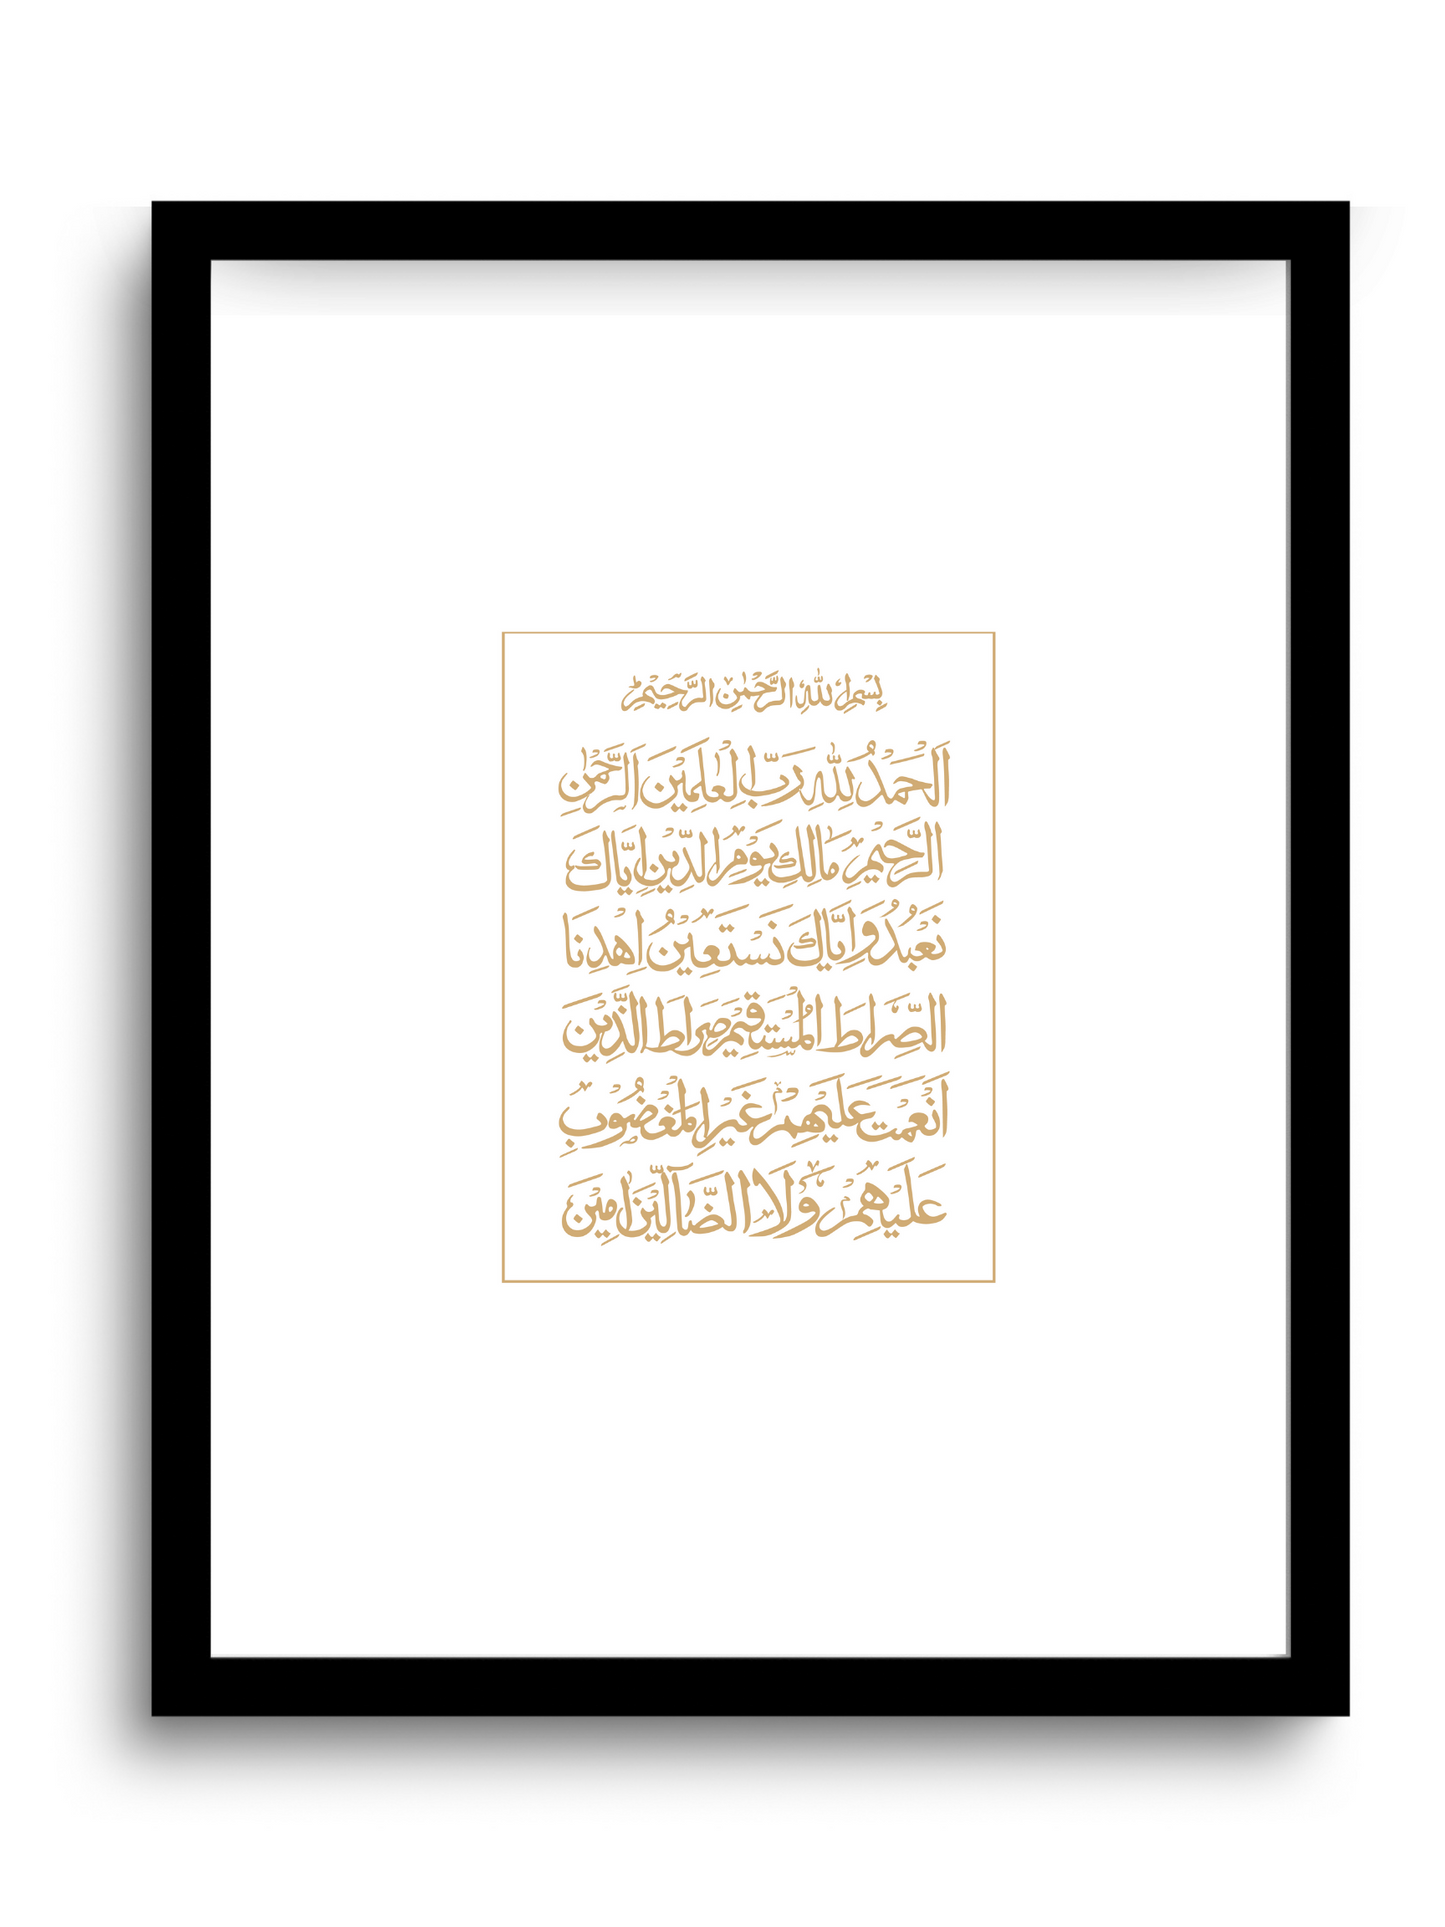 بِسْمِ اللهِ الرَّحْمٰنِ الرَّحِيْمِ
اَلْحَمْدُ لِلّٰهِ رَبِّ الْعٰلَمِيْنَ الرَّحْمٰنِ
الرَّحِيْمِ مَالِكِ يَوْمِ الدِّيْنِ اِيَّاكَ
نَعْبُدُ وَاِيَّاكَ نَسْتَعِيْنُ اِهْدِنَا
الصِّرَاطَ الْمُسْتَقِيْمَ صِرَاطَ الَّذِيْنَ
اَنْعَمْتَ عَلَيْهِمْ غَيْرِ الْمَغْضُوْبِ
عَلَيْهِمْ وَلَا الضَّآلِّيْنَ اٰمِيْنَ